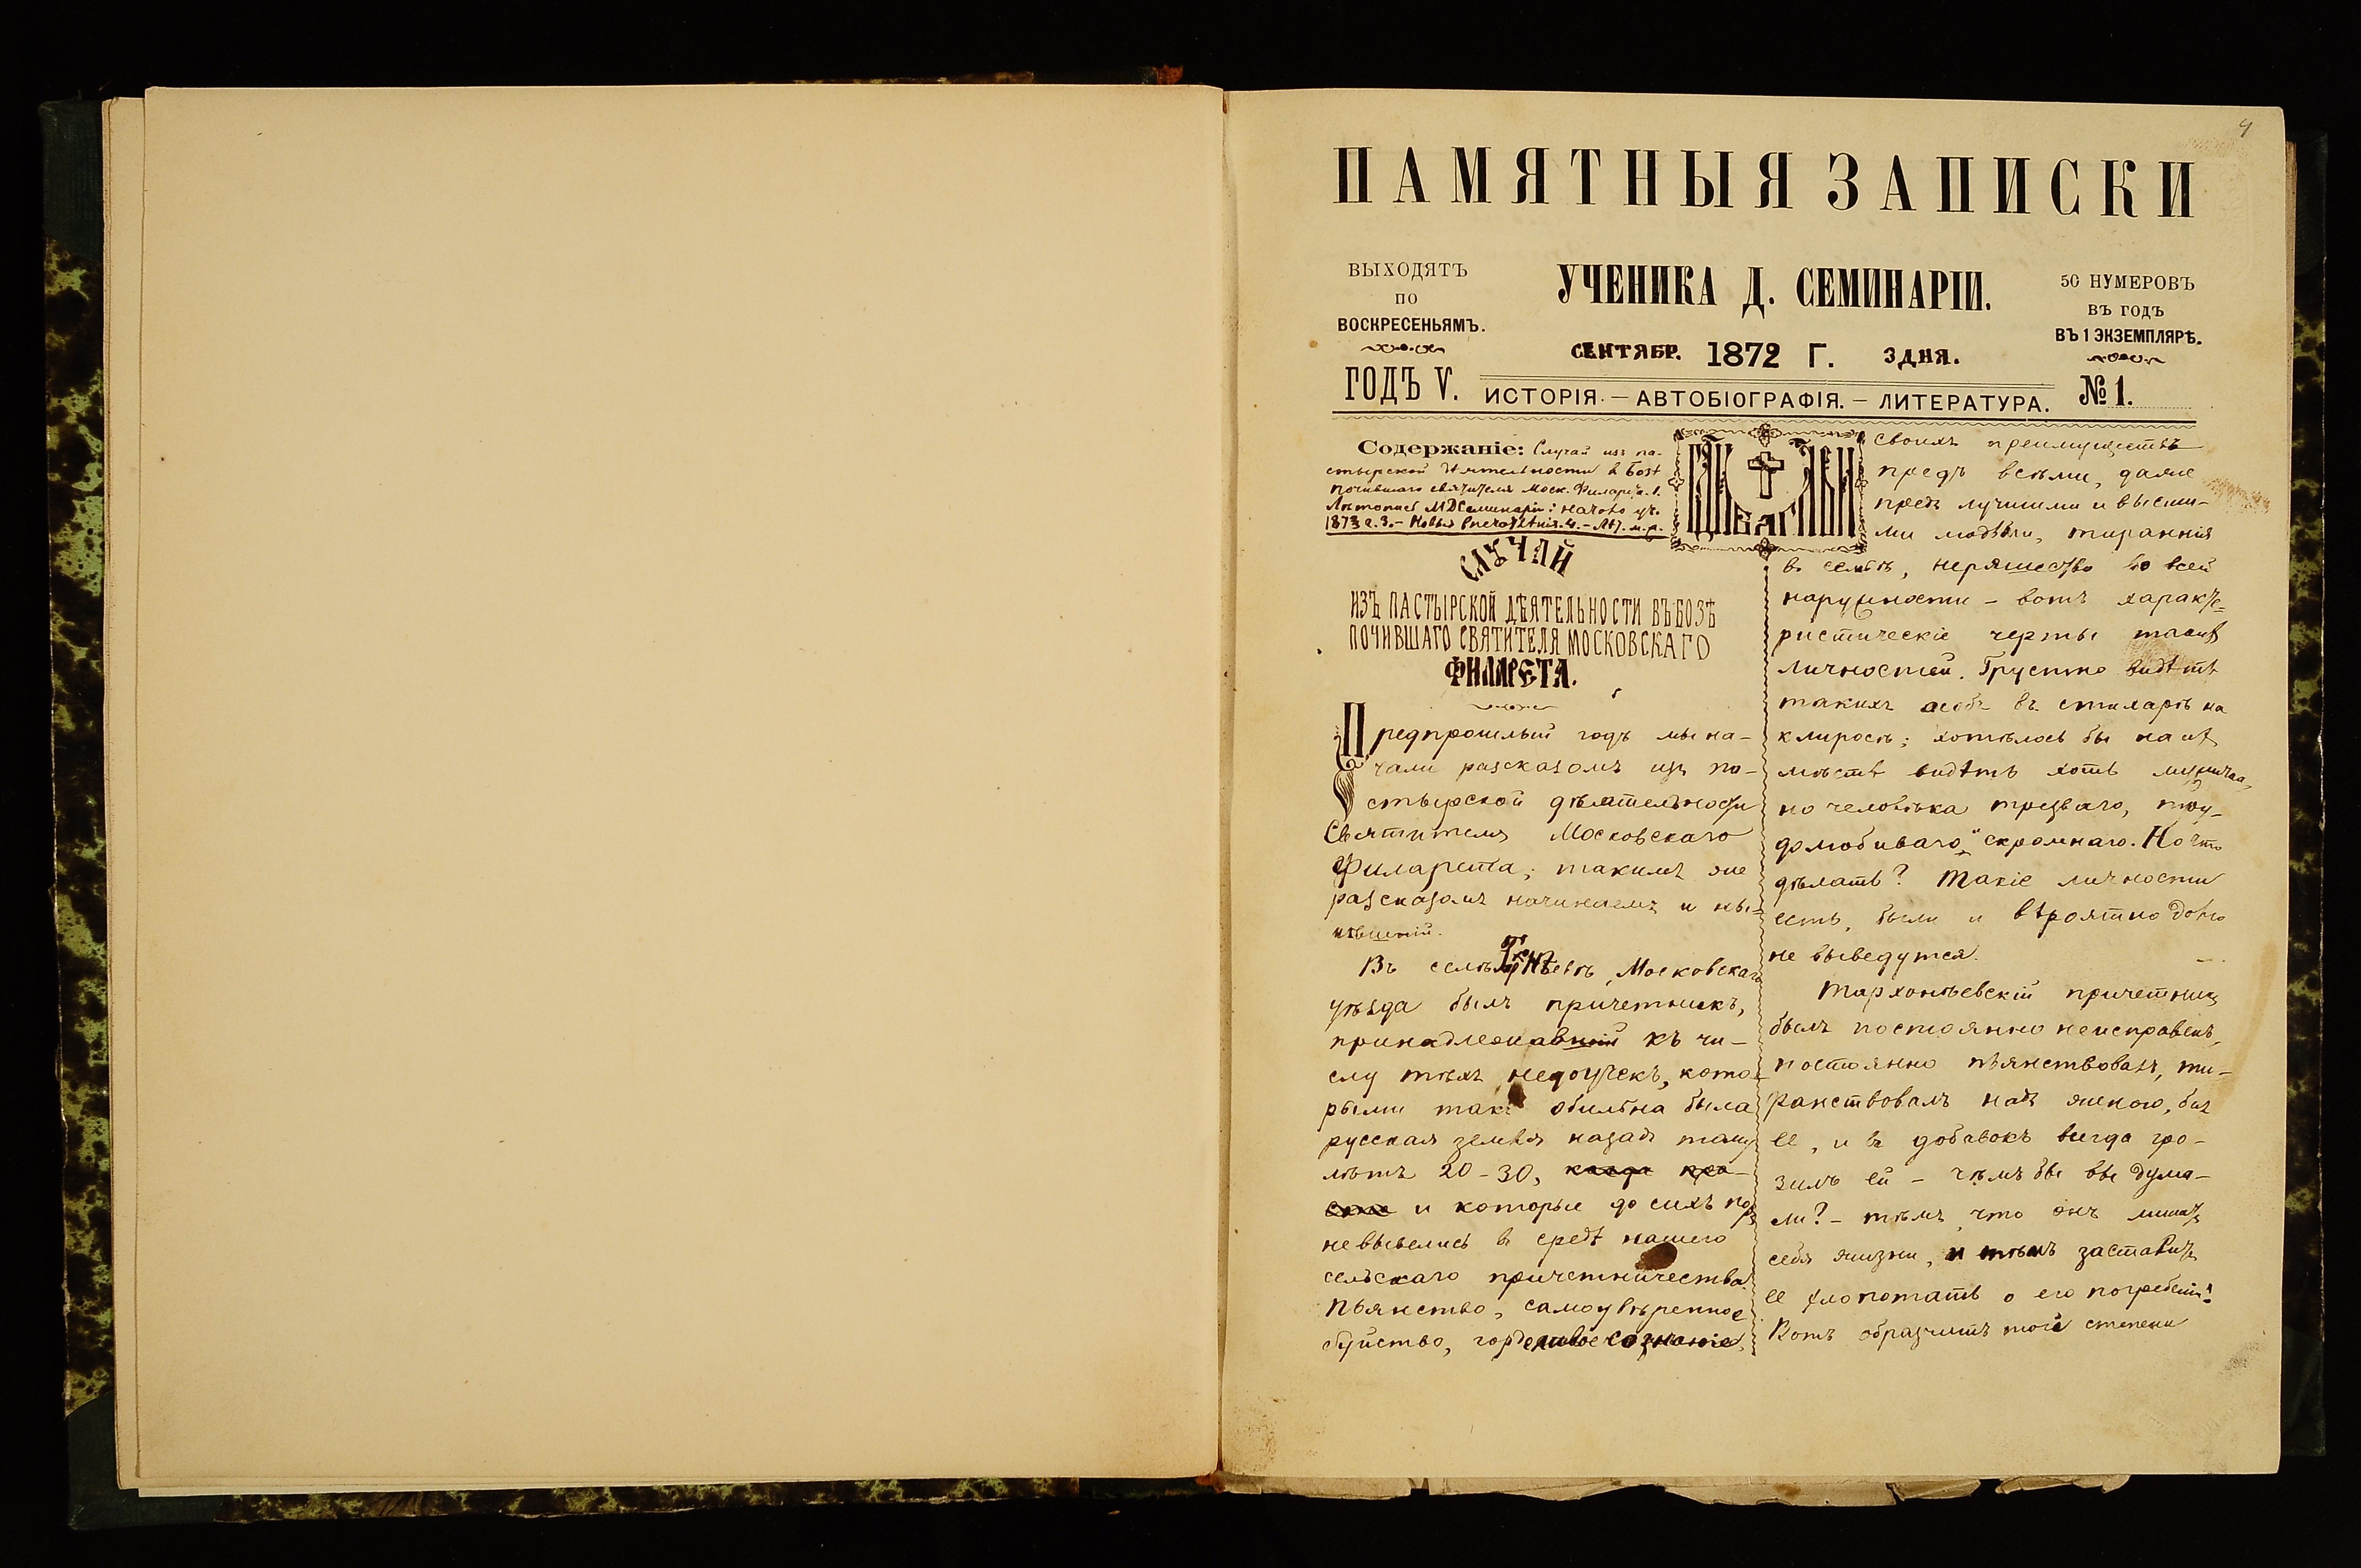 4
ПАМЯТНЫЯ ЗАПИСКИ
ВЫХОДЯТЪ
ПО
ВОСКРЕСЕНЬЯМЪ.
УЧЕНИКА Д. СЕМИНАРІИ.
СЕНТЯБР. 1872 Г. 3 ДНЯ.
50 НУМЕРОВЪ
ВЪ ГОДЪ
ВЪ 1 ЭКЗЕМПЛЯРѢ.
ГОДЪ V.
ИСТОРІЯ. — АВТОБІОГРАФІЯ. — ЛИТЕРАТУРА.
№ 1.
Содержаніе: Случай изъ па-
стырской дѣятельности в Бозѣ
почившаго святителя Моск. Филарета. 1.
Лѣтопись МДСеминаріи: начало уч.
1873 г. 3. – Новыя впечатлѣнія. 4. –
СЛУЧАЙ
ИЗЪ ПАСТЫРСКОЙ ДѢЯТЕЛЬНОСТИ ВЪ БОЗѢ
ПОЧИВШАГО СВЯТИТЕЛЯ МОСКОВСКАГО
ФИЛАРЕТА.
Предпрошлый годъ мы на-
чали разсказомъ изъ па-
стырской дѣятельности
Святителя Московскаго
Филарета; такимъ же
разсказомъ начинаемъ и ны-
нѣшній.
Въ селѣ Московскаго
уѣзда былъ причетникъ,
принадлежавшій къ чи-
слу тѣхъ недоучекъ, кото-
рыми такъ обильна была
русская земля назадъ тому
лѣтъ 20 – 30,
и которые до сихъ поръ
не вывелись в средѣ нашего
сельскаго причетничества.
Пьянство, самоувѣренное
буйство, горделивое сознаніе
своихъ преимуществъ
предъ всѣми, даже
предъ лучшими и высши-
ми людьми, тираннія
въ семьѣ, неряшество во всей
наружности – вотъ характе-
ристическіе черты такихъ
личностей. Грустно видѣть
такихъ особъ въ стихарѣ на
клиросѣ; хотѣлось бы на ихъ
мѣстѣ видѣть хоть
но человѣка трезваго, тру-
долюбиваго и скромнаго. Но что
дѣлать? Такіе личности
есть, были и вѣроятно долго
не выведутся.
Тархонѣевскій причетникъ
былъ постоянно неисправенъ,
постоянно пьянствовалъ, ти-
ранствовалъ надъ женою, билъ
ее, и въ добавокъ всегда гро-
зилъ ей – чѣмъ бы вы дума-
ли? – тѣмъ, что онъ лишитъ
себя жизни, и тѣмъ заставитъ
ее хлопотать о его погребеніи!
Вотъ образчикъ той степени